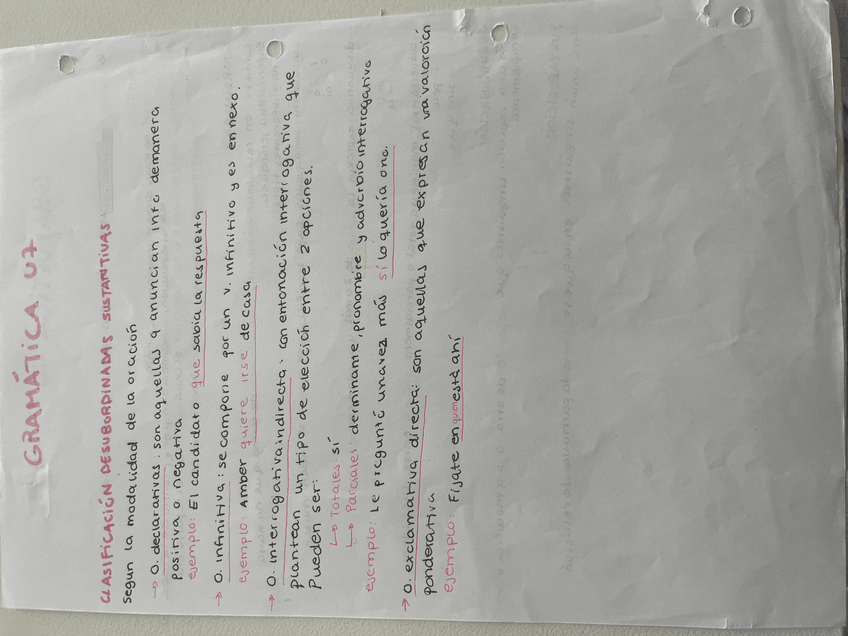 GRAMÁTICA U7
CLASIFICACIÓN DESUBORDINADAS SUSTANTIVAS
segun la modalidad de la oración
→ O. declarativas: son aquellas q anuncian into demanera
positiva o negativa
ejemplo: El candidato que sabía la respuesta
→ O. infinitiva: se compone por un v. infinitivo y es en nexo.
ejemplo: Amber quiere irse de casa
→ O. interrogativa indirecta. con entonación interrogativa que
plantean un tipo de elección entre 2 opciones.
Pueden ser:
↳ Totales: sí
↳ Parciales: derminante, pronombre y adverbio interrogativo
ejemplo: Le preguntó una vez más sí lo quería o no.
→ O. exclamativa directa: son aquellas que expresan una valoración
ponderativa
ejemplo: Fíjate en está ahí